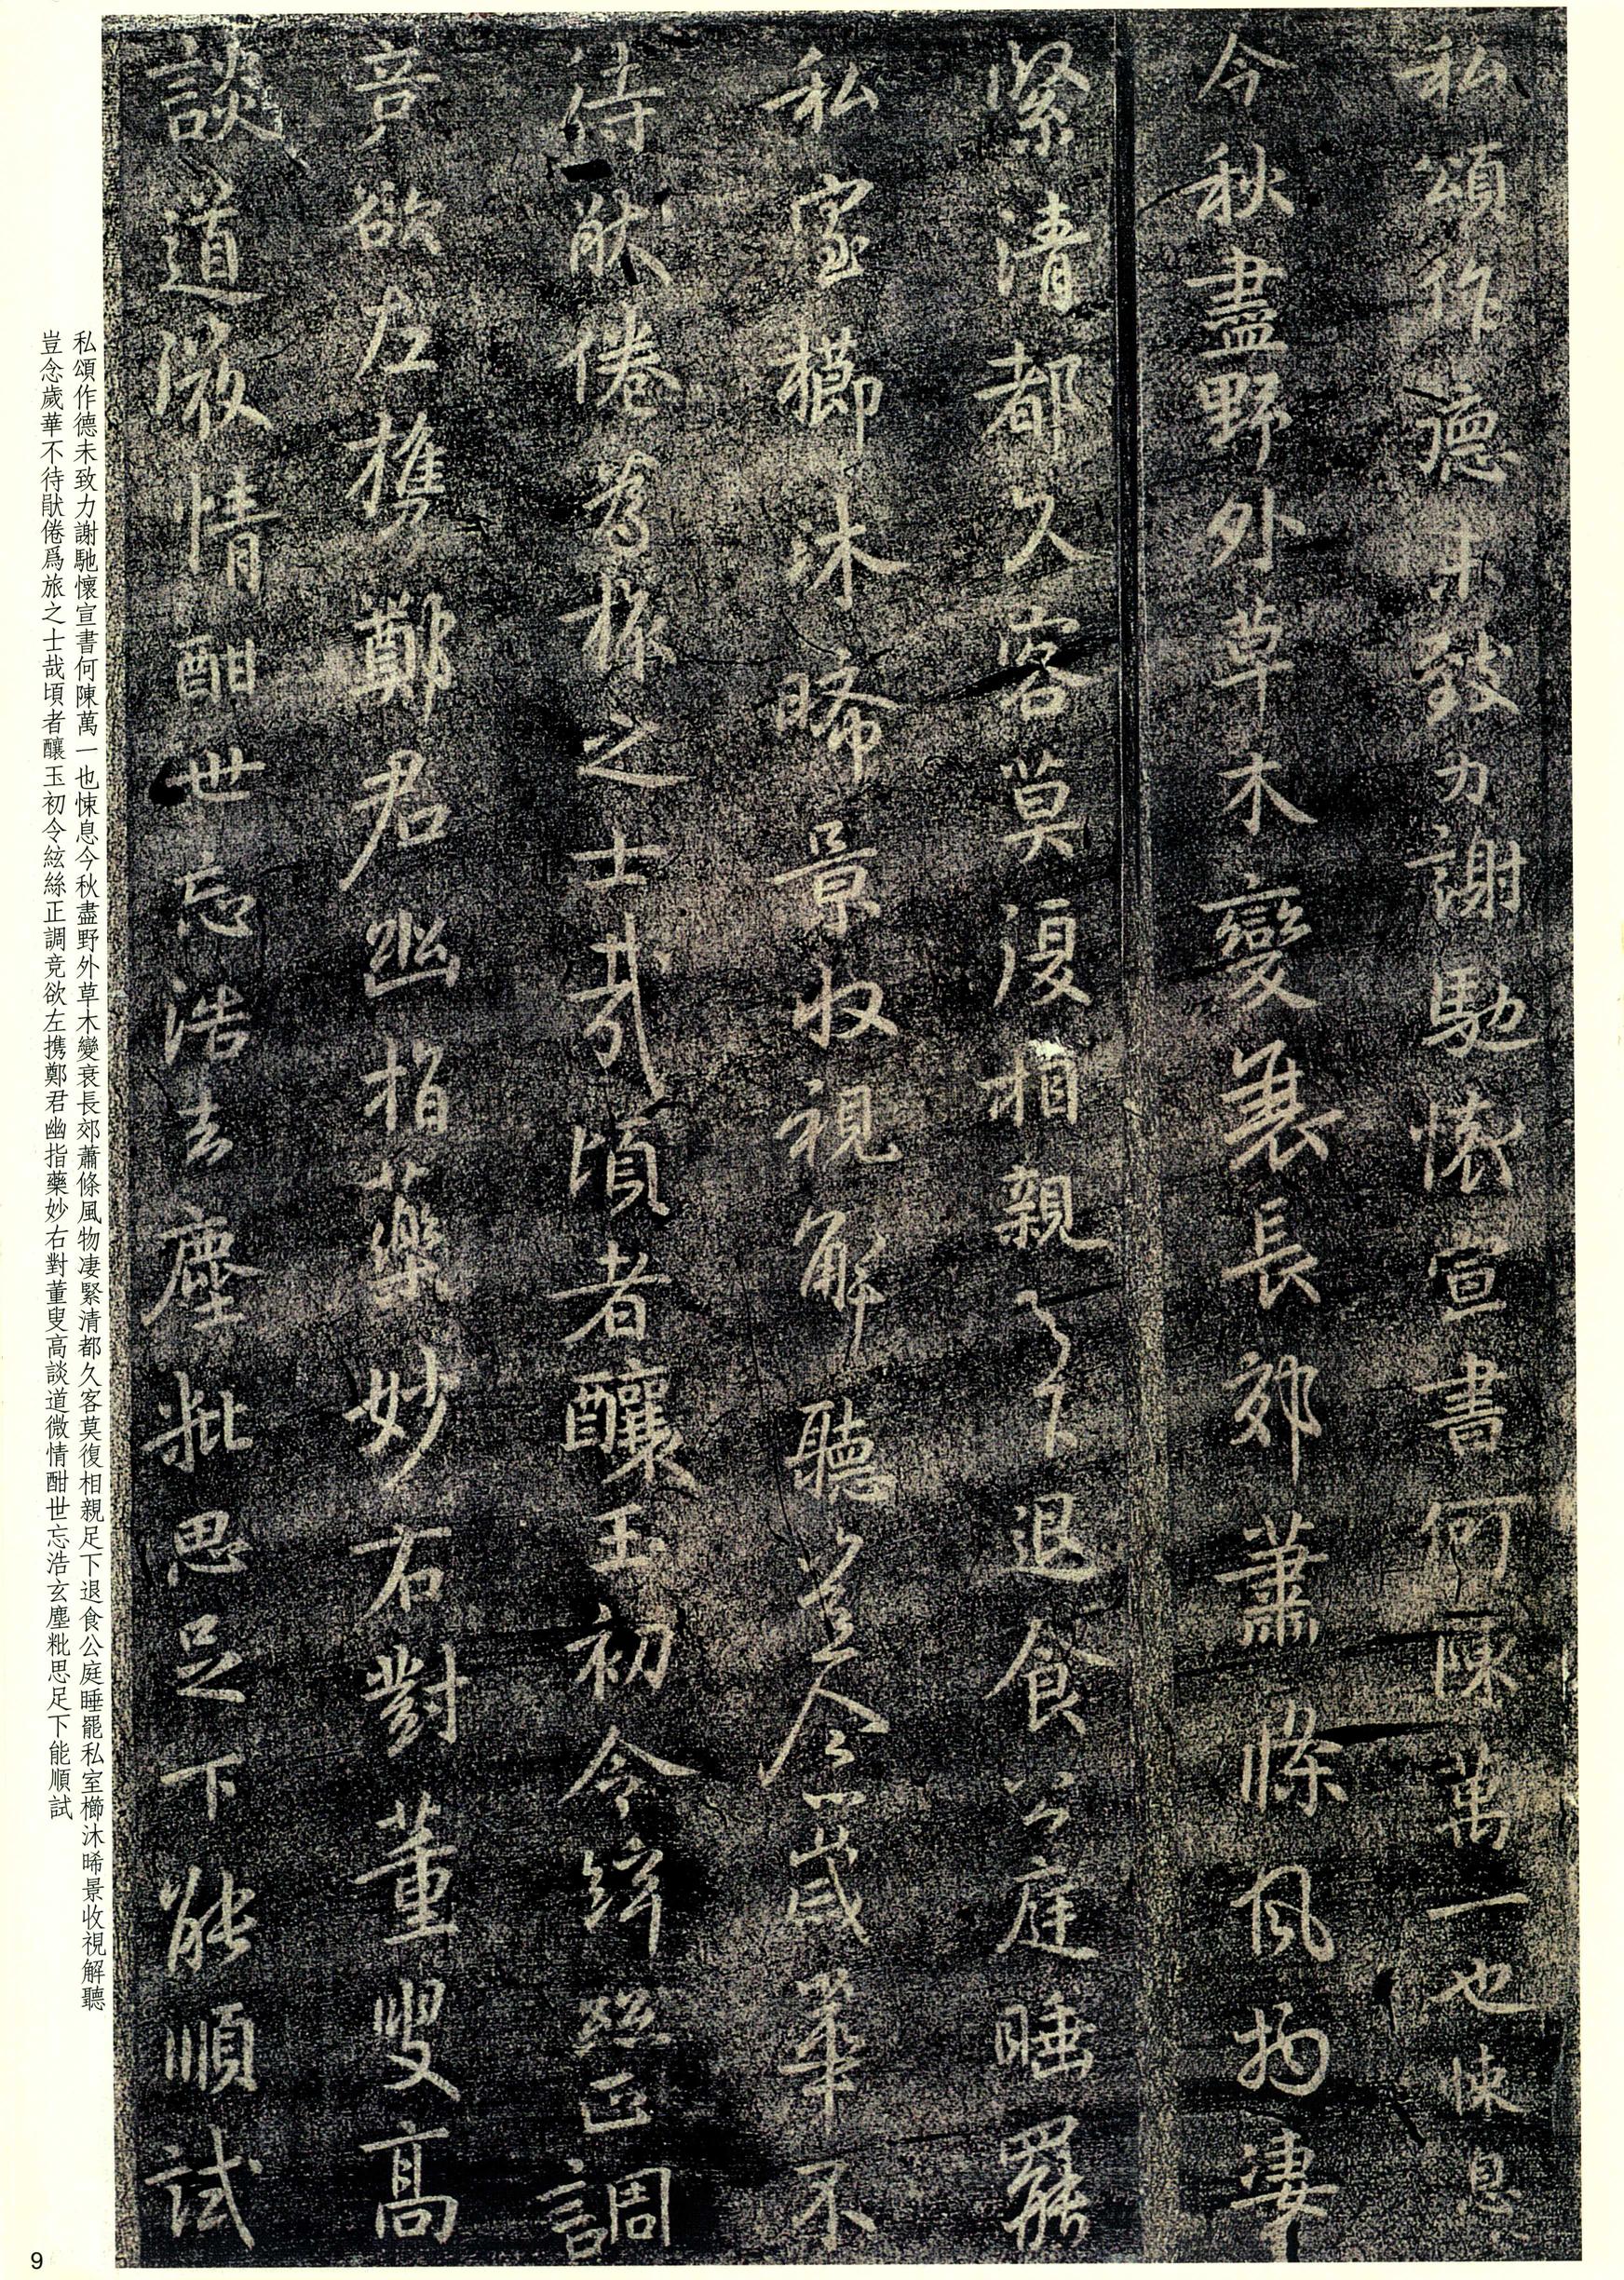 私頌作德未致力謝馳懷宣書何陳萬一也悚息
今秋盡野外草木變衰長郊蕭條風物凄
緊清都久客莫復相親足下退食公庭睡罷
私室櫛沐晞景收視解聽豈念歲華不
待猒倦為旅之士哉頃者釀玉初令絃絲正調
竞欲左攜鄭君幽指藥妙右對董叟高
談道微情酣世忘浩玄塵粃思足下能順試
私頌作德未致力謝馳懷宣書何陳萬一也悚息今秋盡野外草木變衰長郊蕭條風物凄緊清都久客莫復相親足下退食公庭睡罷私室櫛沐晞景收視解聽
豈念歲華不待猒倦爲旅之士哉頃者釀玉初令絃絲正調竞欲左携鄭君幽指藥妙右對董叟高談道微情酣世忘浩玄塵粃思足下能順試
9